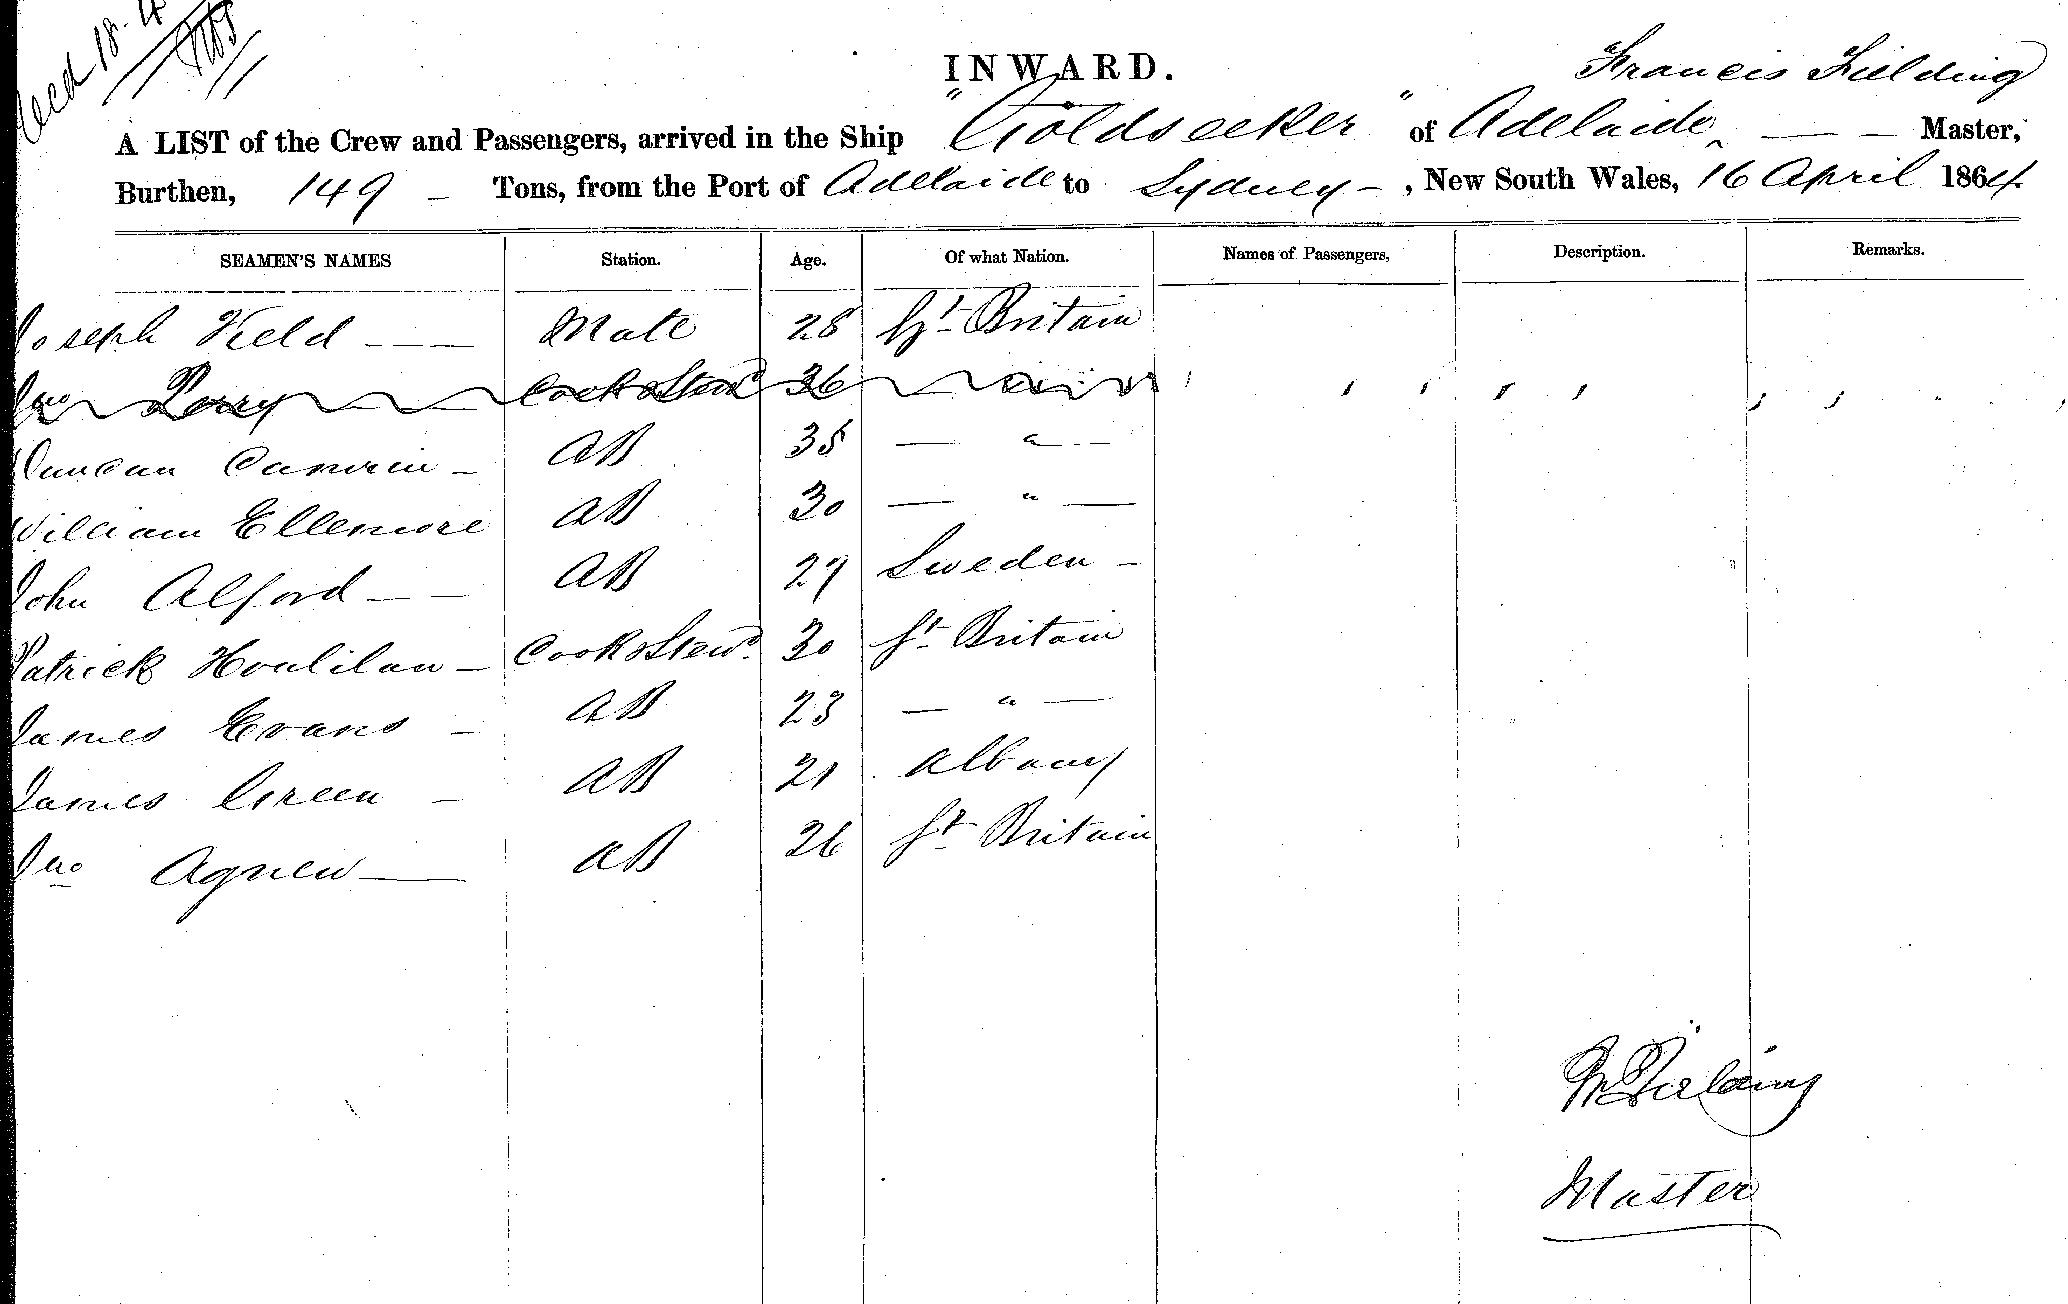 Recd 18.4
INWARD.
Francis Fielding
A LIST of the Crew and Passengers, arrived in the Ship "Goldseeker" of Adelaide, — – Master,
Burthen, 149 – Tons, from the Port of Adelaide to Sydney – , New South Wales, 16 April 1864.
SEAMEN'S NAMES Station. Age. Of what Nation. Names of Passengers, Description. Remarks.
Joseph Keld Mate 28 Gt Britain
Jno Perry Cook & Stewd 36
Duncan Camrin – AB 35 — " —
William Ellemore AB 30 — " —
John Alford — — AB 29 Sweden –
Patrick Houlilan – Cook & Stewd 30 Gt Britain
James Evans – AB 23 — " —
James Green – AB 21 Albany
Jno Agnew — AB 26 Gt Britain
Master